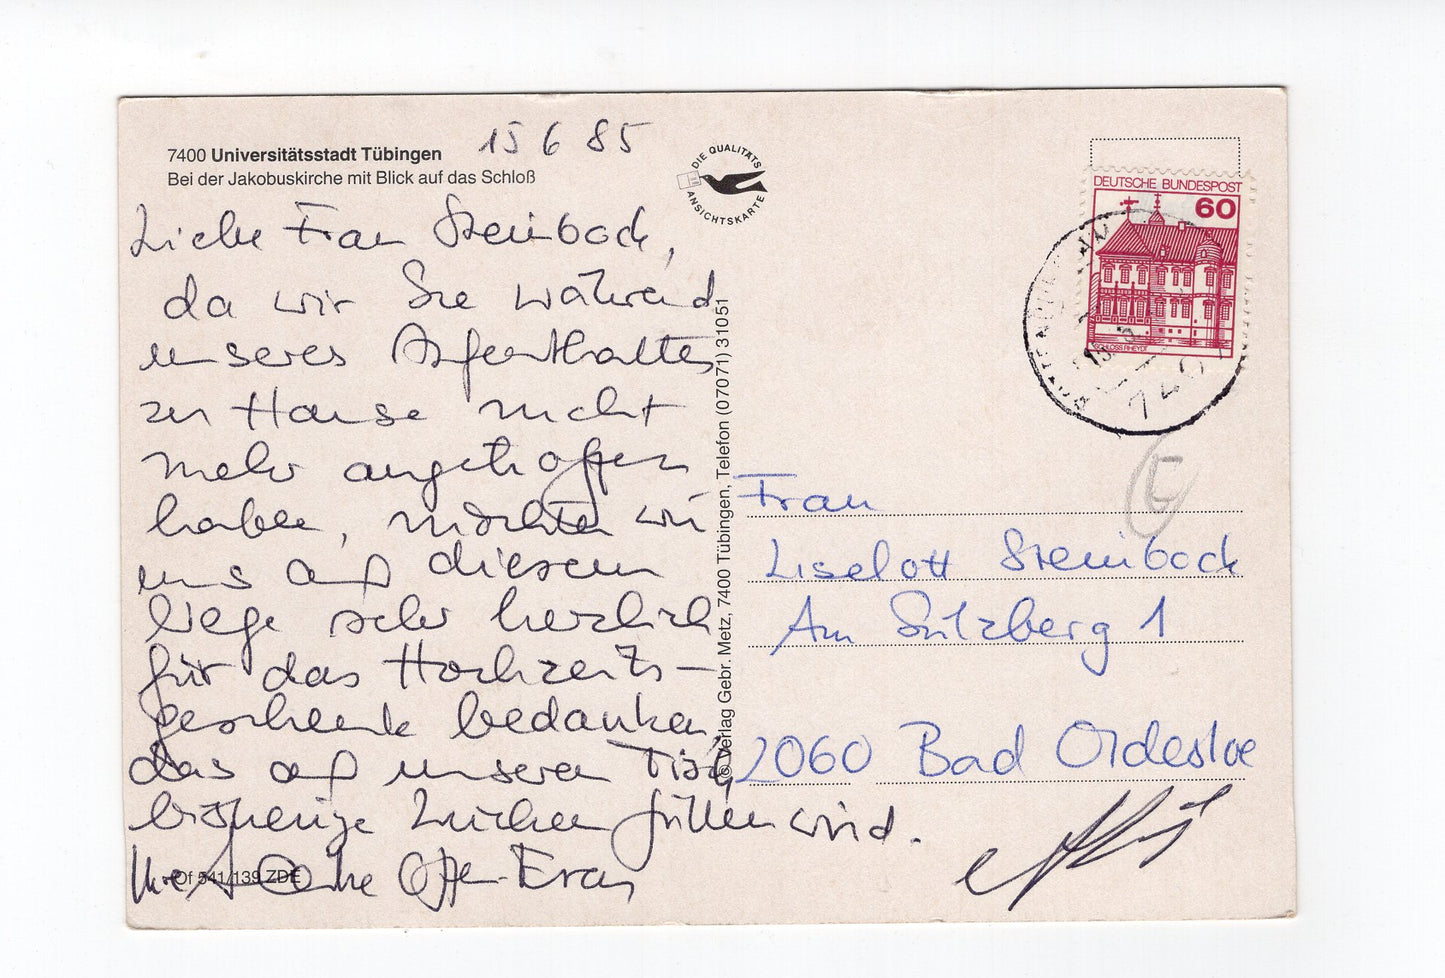 15 6 85
7400 Universitätsstadt Tübingen
Bei der Jakobuskirche mit Blick auf das Schloß
DIE QUALITÄTS
ANSICHTSKARTE
DEUTSCHE BUNDESPOST
60
SCHLOSS RHEYDT
Liebe Frau Steinbock,
da wir Sie während
unseres Aufenthaltes
zu Hause nicht
mehr angetroffen
haben, möchten wir
uns auf diesem
Wege sehr herzlich
für das Hochzeits-
geschenk bedanken,
das auf unserem Tisch
bisherige Lücken füllen wird.
Ihre
Of 541/139 ZDE
© Verlag Gebr. Metz, 7400 Tübingen, Telefon (07071) 31051
Frau
Liselott Steinbock
Am Sülzberg 1
2060 Bad Oldesloe